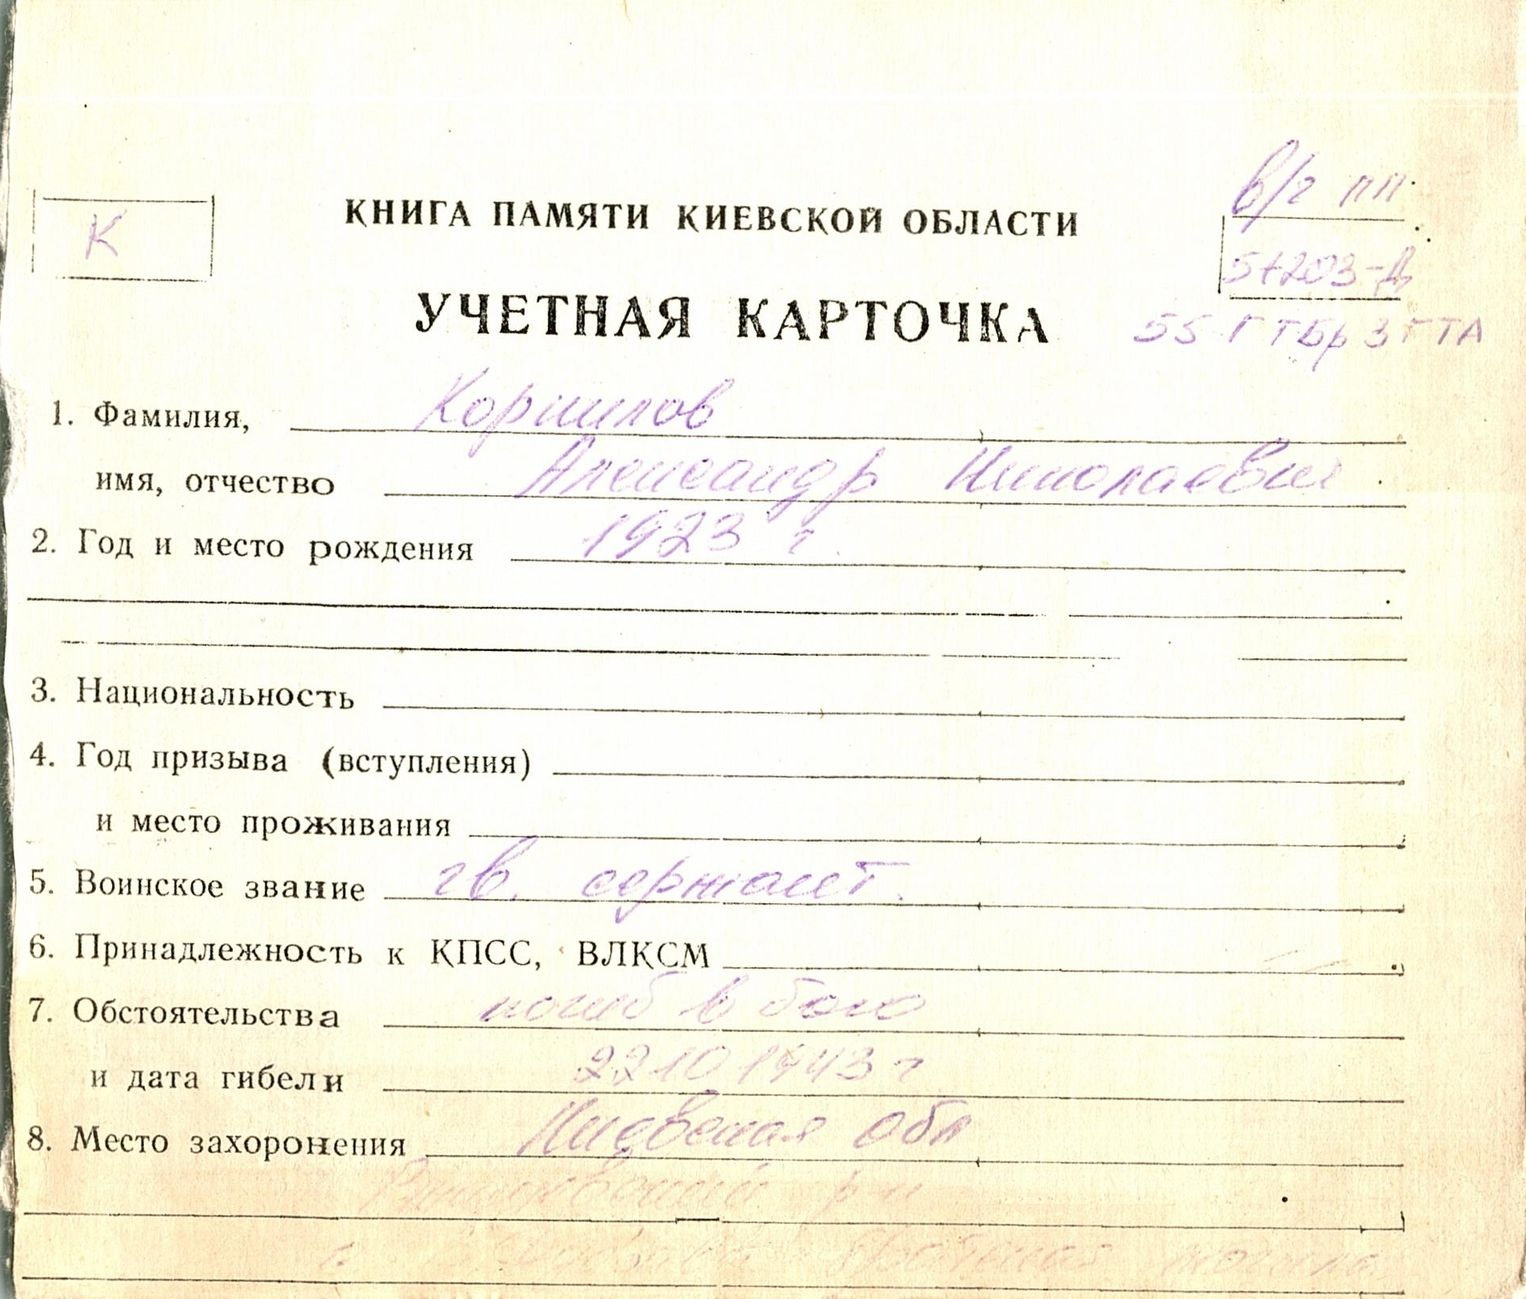 К
в/ч пп
57203-Д
КНИГА ПАМЯТИ КИЕВСКОЙ ОБЛАСТИ
УЧЕТНАЯ КАРТОЧКА
55 ГТБр 3 ГТА
1. Фамилия, Корнилов
имя, отчество Александр Николаевич
2. Год и место рождения 1923 г.
3. Национальность
4. Год призыва (вступления)
и место проживания
5. Воинское звание гв. сержант.
6. Принадлежность к КПСС, ВЛКСМ
7. Обстоятельства погиб в бою
и дата гибели 22 10 1943 г
8. Место захоронения Киевская обл
р-н
Братская могила